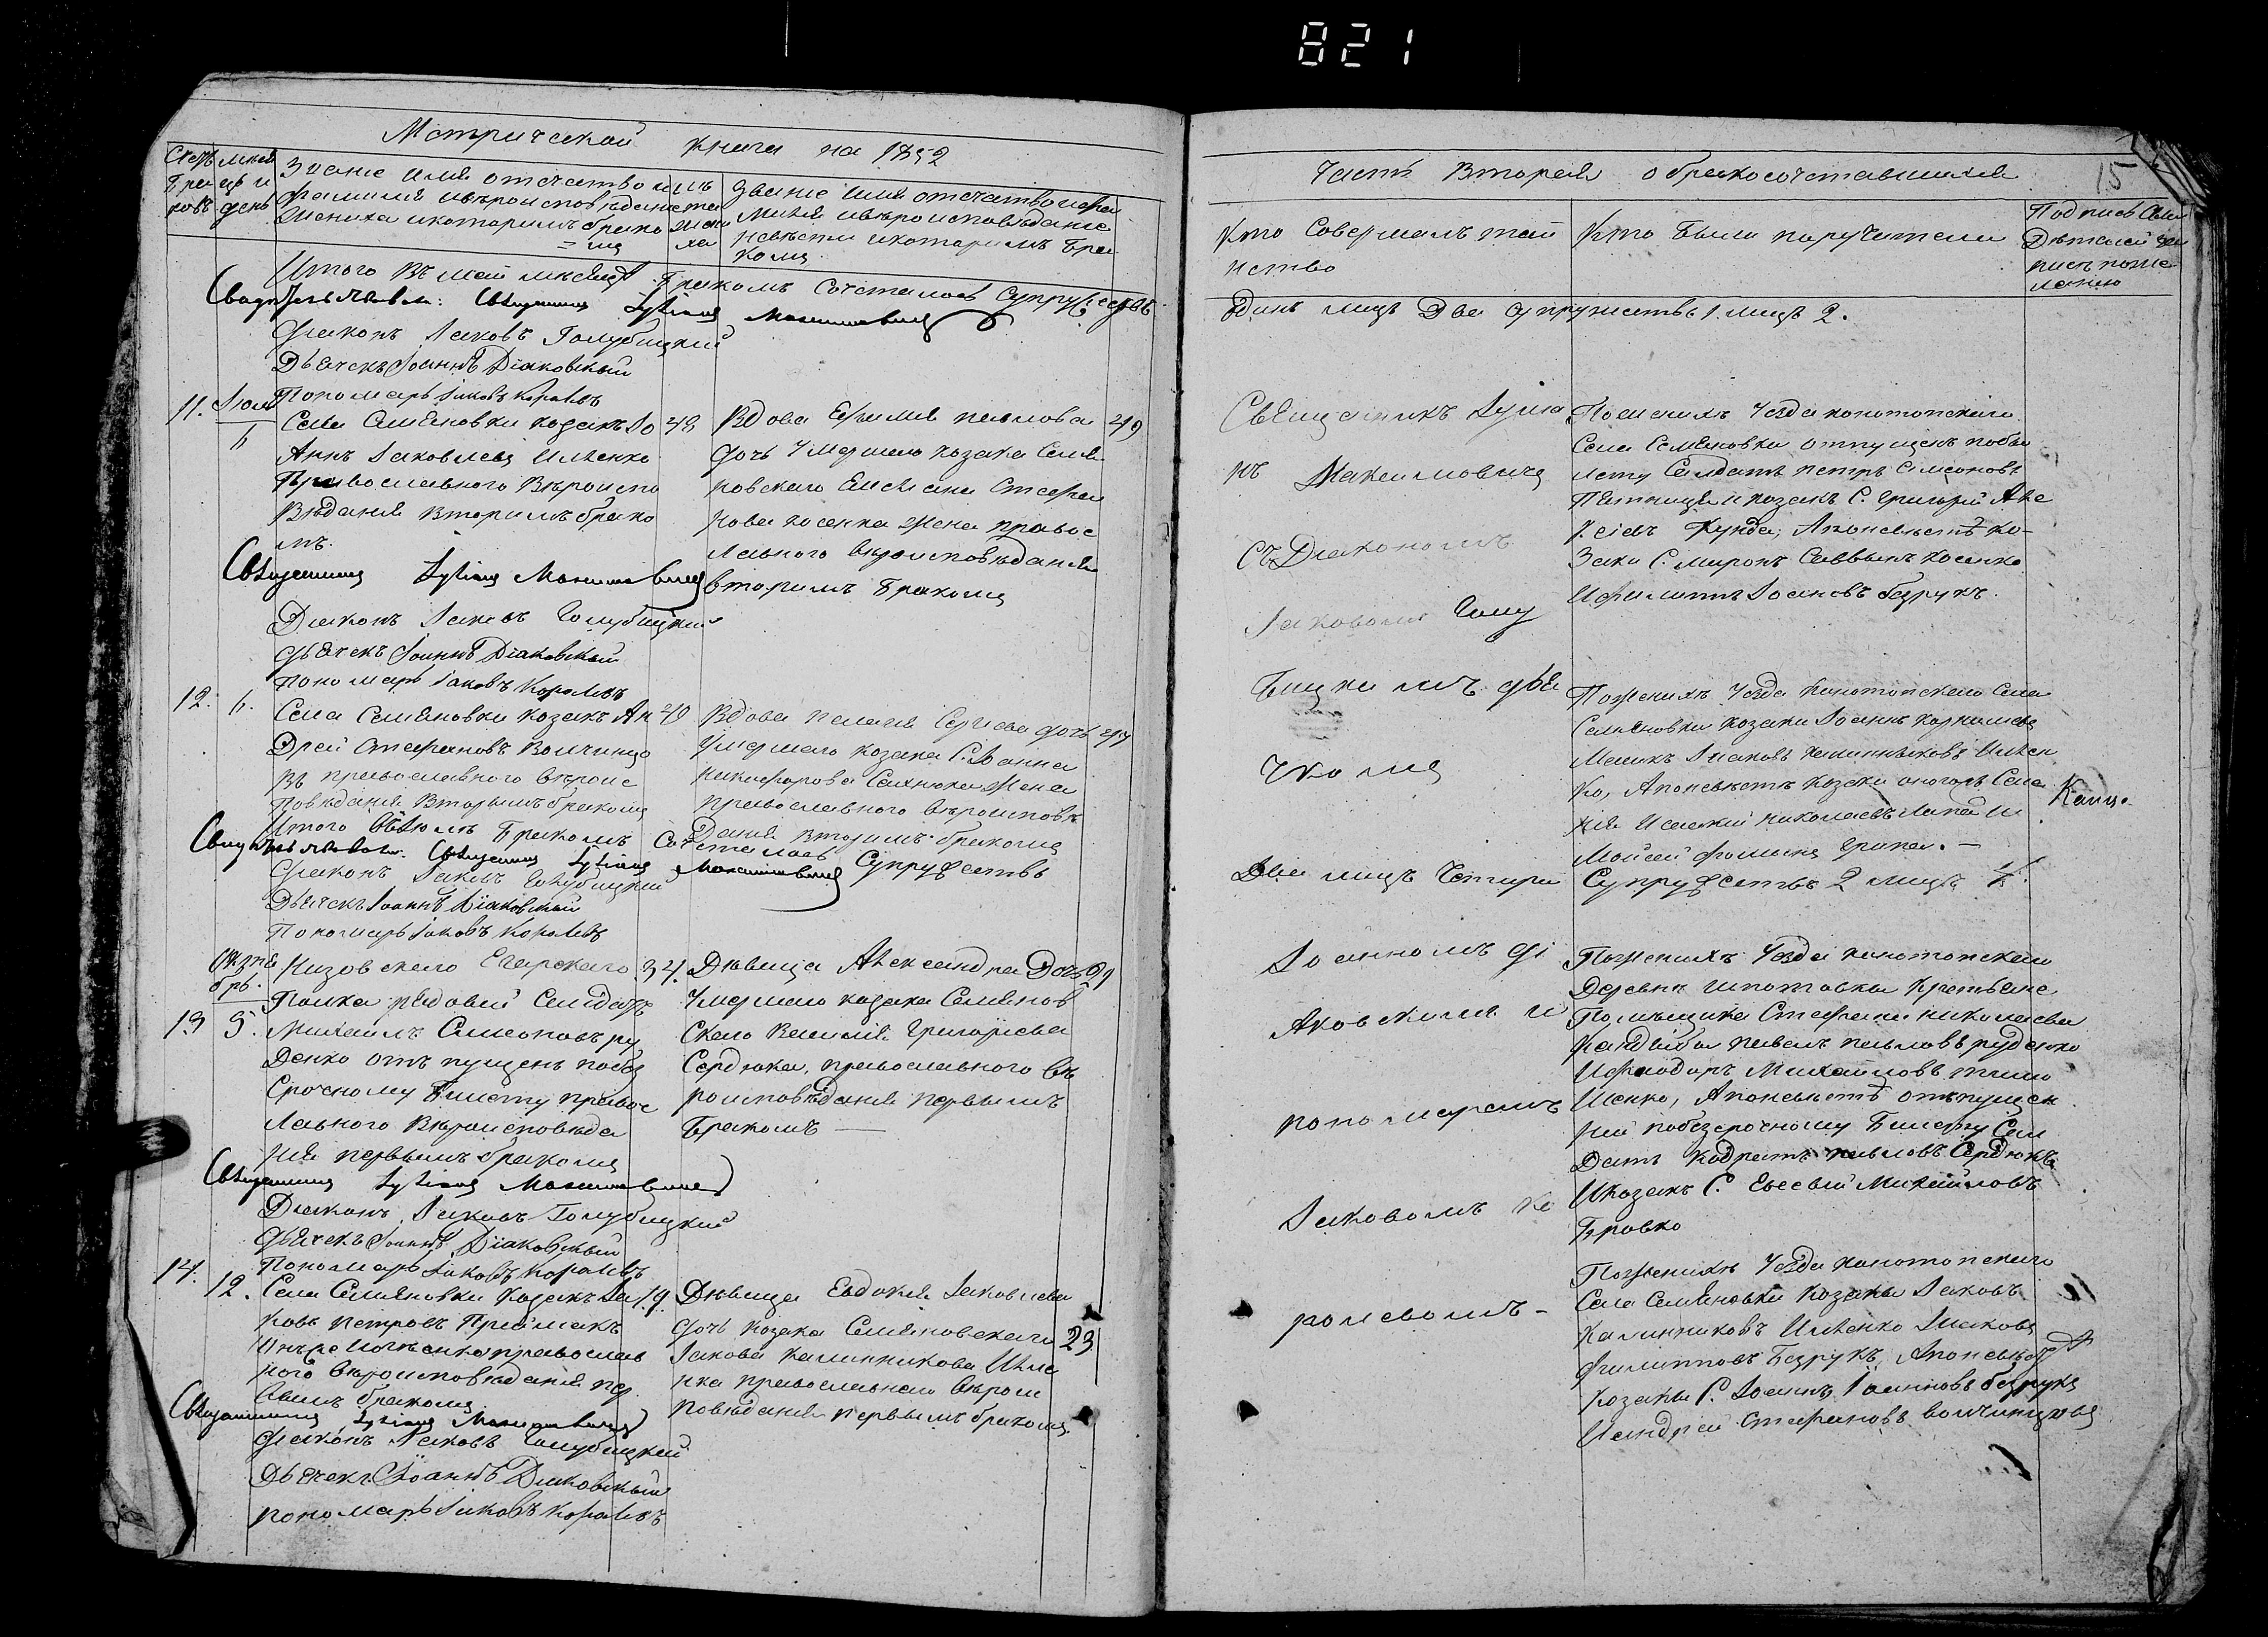 821
Метрической книги на 1852
Счетъ браковъ
Мѣсяцъ и день
Званіе имя отчество и
фамилія и вѣроисповѣданіе
жениха и которимъ бракомъ
Званіе имя отчество и фа
милія и вѣроисповѣданіе
невѣсти и которимъ бра
комъ
Итого въ май мѣсяцѣ бракомъ сочеталось супружествъ
Свидѣтельствовали: Священникъ Лукіанъ Максимовичъ
Діаконъ Іаковъ Голубицкій
Дьячекъ Іоаннъ Діаковскый
Пономарь Іаковъ Королевъ
11. Іюль 6
Села Семяновки козакъ Іо 48
Аннъ Іаковлевъ Ильенко
Православного вѣроиспо
вѣданія вторимъ брако
мъ.
Вдова Ефимія Павлова 49
дочь умершаго козака Семя
новского
Косенка жена правос
лавного вѣроисповѣданія
вторимъ бракомъ
Священникъ Лукіанъ Максимовичъ
Діаконъ Іаковъ Голубицкій
Дьячекъ Іоаннъ Діаковскый
Пономарь Іаковъ Королевъ
12. 6.
Села Семяновки козакъ Ан 40
дрей Стефановъ Волчинцо
въ православного вѣроис
повѣданія вторымъ бракомъ
Вдова Пелагія Сергіева дочь
умершаго козака С. Іоанна
Никифорова жена
православного вѣроисповѣ
данія вторимъ бракомъ
Итого въ Іюлѣ бракомъ сочеталось супружествъ
Свидѣтельствовали: Священникъ Лукіанъ Максимовичъ
Діаконъ Іаковъ Голубицкій
Дьячекъ Іоаннъ Діаковскый
Пономарь Іаковъ Королевъ
Октябрь
13 5.
Низовского Егерского 34.
полка рядовый солдатъ
Михаилъ Симеоновъ Ру
денко отъ пущенъ побез
срочному билету правос
лавного вѣроисповѣда
нія первымъ бракомъ
Дѣвица Александра дочь 21
умершаго козака Семянов
ского Василія Григоріева
Сердюка, православного вѣ
роисповѣданія первымъ
бракомъ
Священникъ Лукіанъ Максимовичъ
Діаконъ Іаковъ Голубицкій
Дьячекъ Іоаннъ Діаковскый
Пономарь Іаковъ Королевъ
14. 12.
Села Семяновки козакъ Іа 19.
ковъ Петровъ Приймакъ
православ
ного вѣроисповѣданія пер
вимъ бракомъ
Дѣвица Евдокія Іаковлева
дочь козака Семяновского 23
Іакова Калинникова Илье
нка православного вѣрои
сповѣданія первымъ бракомъ
Священникъ Лукіанъ Максимовичъ
Діаконъ Іаковъ Голубицкій
Дьячекъ Іоаннъ Діаковскый
Пономарь Іаковъ Королевъ
Часть вторая о бракосочетавшихся
15
Кто совершалъ таи
нство
Кто были поручители
Подпись сви
дѣтелей за
пись по же
ланію
одинъ лицъ два супружествъ 1. лицъ 2.
Священникъ Лукіа
нъ Максимовичъ
съ Діакономъ
Іаковомъ Голу
бицкимъ дья
чкомъ
По женихѣ Уѣзда Конотопского
Села Семяновки отпущенъ побы
лету солдатъ Петръ Симеоновъ
и козакъ С. Григорій Але
ксіевъ Кунда, а по невѣстѣ ко-
заки С. Миронъ Саввынъ Косенко
и Филиппъ Іоановъ Безрукъ.
По женихѣ Уѣзда Конотопского Села
Семяновки козаки Іоаннъ
Калинниковъ Ильен
ко, а по невѣстѣ козаки оногожъ Села
Николаевъ Лапа и
Мойсей Фоминъ
Два лицъ четыри супружествъ 2 лицъ 4.
Іоанномъ Ді
аковскимъ и
пономаремъ
Іаковомъ Ко
ролевомъ -
По женихѣ Уѣзда Конотопского
деревнѣ Шпотовки крестьяне
помѣщика Стефана Николаева
Кандыбы Павелъ Павловъ Руденко
и Феодоръ Михайловъ Тимо
шенко, а по невѣстѣ отъпущен
ній побезсрочному билету сол
датъ Кодратъ Павловъ Сердюкъ
и козакъ С. Евсевій Михайловъ
Бровко
По женихѣ Уѣзда Конотопского
Села Семяновки козаки Іаковъ
Калинниковъ Ильенко
Филипповъ Безрукъ, а по невѣстѣ
козаки С. Іоаннъ Іоанновъ Безрукъ
и Андрей Стефановъ Волчинцовъ